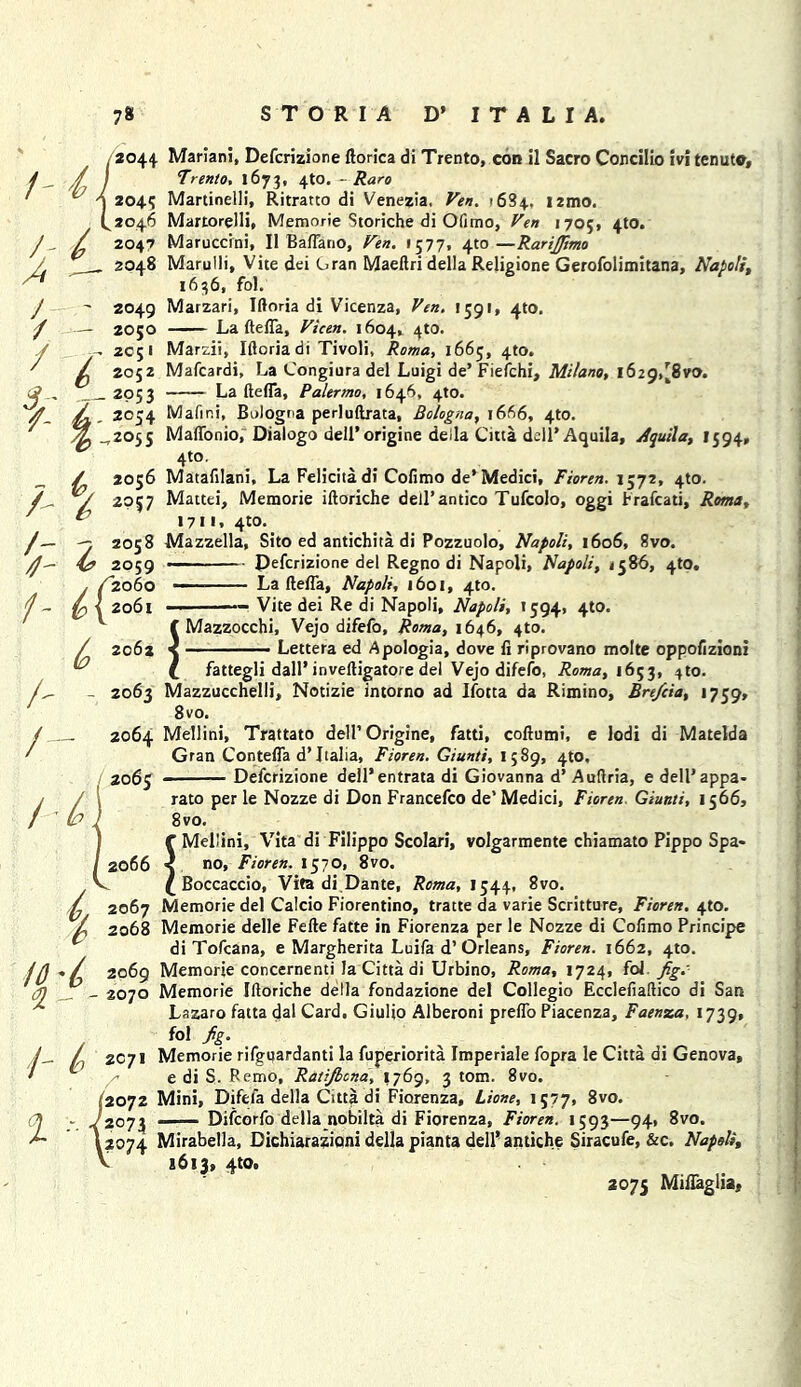 78 STORIA D' ITALIA.
2044 Mariani, Deſcrizione ſtorica di Trento, con il Sacro Concilio ivi tenuto,
Trento, 1673, 4to. - Raro
2045 Martinelli, Ritratto di Venezia, Ven. 1684, 12mo.
2046 Martorelli, Memorie Storiche di Oſimo, Ven 1705, 4to.
2047 Maruccini, Il Baſſano, Ven. 1577, 4to —Rariſſimo
2048 Marulli, Vite dei Gran Maeſtri della Religione Geroſolimitana, Napoli,
1636, fol.
2049 Marzari, Iſtoria di Vicenza, Ven. 1591, 4to.
2050 —— La ſteſſa, Vicen. 1604, 4to.
2051 Marzii, Iſtoria di Tivoli, Roma, 1665, 4to.
2052 Maſcardi, La Congiura del Luigi de' Fieſchi, Milano, 1629, 8vo.
2053 —— La ſteſſa, Palermo, 1646, 4to.
2054 Maſini, Bologna perluſtrata, Bologna, 1666, 4to.
2055 Maſſonio, Dialogo dell' origine della Città dell' Aquila, Aquila, 1594,
4to.
2056 Mataſilani, La Felicità di Coſimo de' Medici, Fioren. 1572, 4to.
2057 Mattei, Memorie iſtoriche dell' antico Tuſcolo, oggi Fraſcati, Roma,
1711, 4to.
2058 Mazzella, Sito ed antichità di Pozzuolo, Napoli, 1606, 8vo.
2059 ——— Deſcrizione del Regno di Napoli, Napoli, 1586, 4to.
2060 ——— La ſteſſa, Napoli, 1601, 4to.
2061 ——— Vite dei Re di Napoli, Napoli, 1594, 4to.
{ Mazzocchi, Vejo difeſo, Roma, 1646, 4to.
2062 { ——— Lettera ed Apologia, dove ſi riprovano molte oppoſizioni
{ fattegli dall' inveſtigatore del Vejo difeſo, Roma, 1653, 4to.
2063 Mazzucchelli, Notizie intorno ad Iſotta da Rimino, Breſcia, 1759,
8vo.
2064 Mellini, Trattato dell' Origine, fatti, coſtumi, e lodi di Matelda
Gran Conteſſa d' Italia, Fioren. Giunti, 1589, 4to,
2065 ——— Deſcrizione dell' entrata di Giovanna d' Auſtria, e dell' appa-
rato per le Nozze di Don Franceſco de' Medici, Fioren. Giunti, 1566,
8vo.
{ Mellini, Vita di Filippo Scolari, volgarmente chiamato Pippo Spa-
2066 { no, Fioren. 1570, 8vo.
{ Boccaccio, Vita di Dante, Roma, 1544, 8vo.
2067 Memorie del Calcio Fiorentino, tratte da varie Scritture, Fioren. 4to.
2068 Memorie delle Feſte fatte in Fiorenza per le Nozze di Coſimo Principe
di Toſcana, e Margherita Luiſa d' Orleans, Fioren. 1662, 4to.
2069 Memorie concernenti la Città di Urbino, Roma, 1724, fol. fig.
2070 Memorie Iſtoriche della fondazione del Collegio Eccleſiaſtico di San
Lazaro fatta dal Card. Giulio Alberoni preſſo Piacenza, Faenza, 1739,
fol fig.
2071 Memorie riſguardanti la ſuperiorità Imperiale ſopra le Città di Genova,
e di S. Remo, Ratiſbona, 1769, 3 tom. 8vo.
2072 Mini, Difeſa della Città di Fiorenza, Lione, 1577, 8vo.
2073 —— Diſcorſo della nobiltà di Fiorenza, Fioren. 1593—94, 8vo.
2074 Mirabella, Dichiarazioni della pianta dell' antiche Siracuſe, &c. Napoli,
1613, 4to.
2075 Miſſaglia,